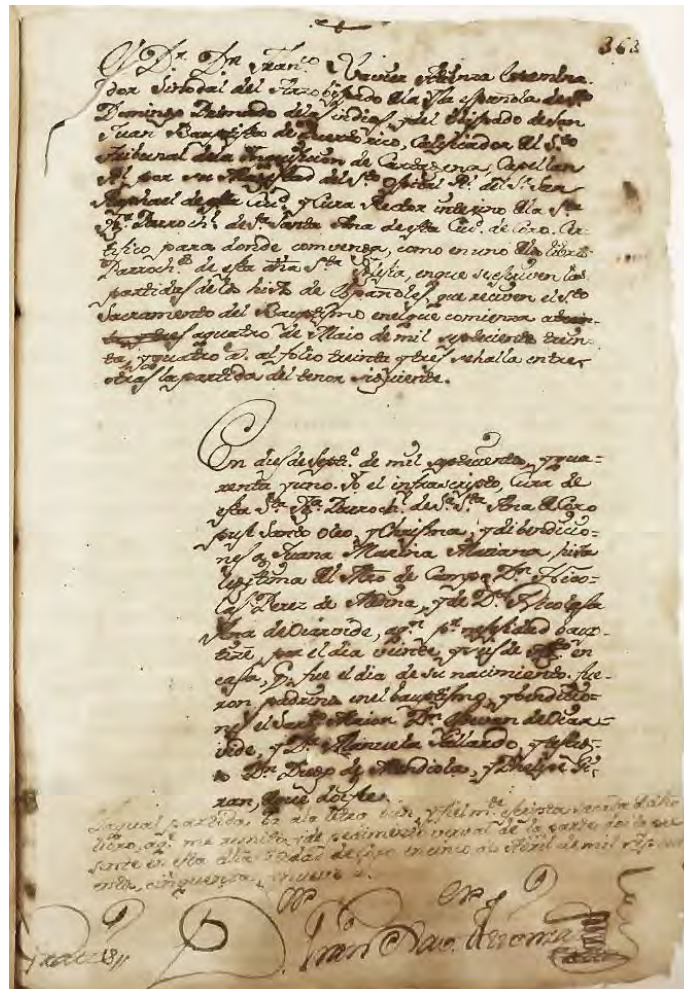 363
El Dr. Dn. Franco. Xavier Atienza Examina-
dor Sinodal del Arzobispado de la Ysla española de Sto.
Domingo Primado de las indias, y del obispado de San
Juan Bauptista de Puertorico, Calificador del Sto.
Tribunal de la Inquisicion de Cartagena, Capellan
Rl. por su Magestad del Sto. Ospital Rl. del Sr. San
Raphael de esta Ciud. y Cura Rector interino de la Sta.
Parrochl. de Sa. Santa Ana de esta Ciud. de Coro. Cer-
tifico para donde convenga, como en uno de los libros
Parrochs. de esta dha Sta. Yglesia, en que se escriven las
partidas de los hijos de Españoles, que reciven el Sto.
Sacramento del Bauptismo en el que comienza
a quatro de Maio de mil septeciento trein-
ta, y quatro as. al folio treinta y tres se halla entre
otras la partida del tenor siguiente.
En dies de Septe. de mil septeciento, y qua-
renta y uno. Yo el infrascripto, Cura de
esta Sta. Parrochl. de Sa. Sta. Ana de Coro
puse Santo oleo, y Chrisma, y di bendicio-
nes a Juana Marina Mariana, hija
legitima del Mtro de Campo Dn. Nico-
las Perez de Medina, y de Da. Nicolasa
Ana de Oiarvide, a qn. pr. nesesidad baup-
tizé, por el dia veinte, y seis de Agto. en
casa, q. fue el dia de su nacimiento. fue-
ron padrinos en el bauptismo, y bendicio-
nes el Sargto. Maior Dn. Estevan de Oiar-
vide, y Da. Manuela Gallardo, y testigos
Dn. Diego de Mendiola, y Phelipe
ran, de que doi fee.
La qual partida, va a la letra bien, y fielmte. scripta sacada de dho
libro, a q. me remito, i de pedimento verval de la parte doi la pre-
sente en esta dha Ciudad de Coro en uno de Abril de mil septecien-
enta, cinquenta, y nueve a.